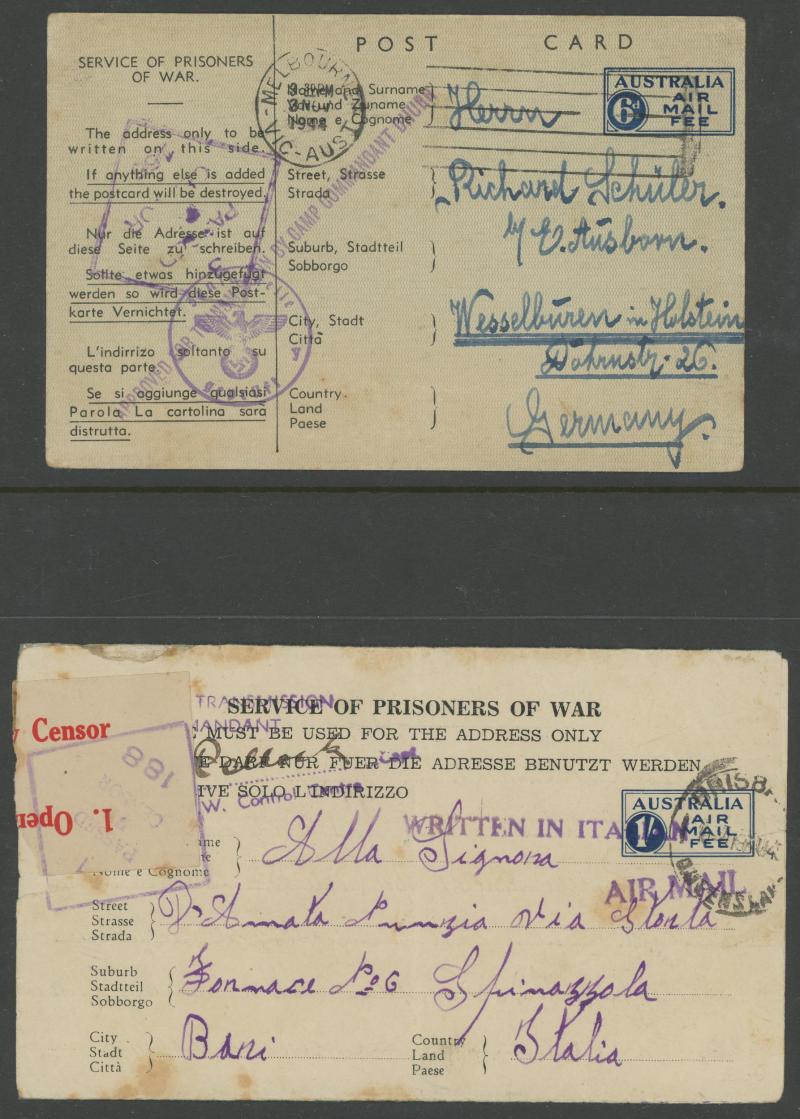 POST CARD
SERVICE OF PRISONERS
OF WAR.
The address only to be
written on this side.
If anything else is added
the postcard will be destroyed.
Nur die Adresse ist auf
diese Seite zu schreiben.
Sollte etwas hinzugefugt
werden so wird diese Post-
karte Vernichtet.
L'indirrizo soltanto su
questa parte.
Se si aggiunge qualsiasi
Parola La cartolina sara
distrutta.
MELBOURNE
1944
VIC-AUST
Name and Surname
Vor und Zuname
Nome e Cognome
Herrn
AUSTRALIA
6D
AIR
MAIL
FEE
APPROVED FOR TRANSMISSION BY CAMP COMMANDANT
PASSED
CENSOR
Street, Strasse
Strada
Richard Schüler.
Suburb, Stadtteil
Sobborgo
E. Ausborn.
City, Stadt
Citta
Wesselburen in Holstein
Dohrnstr. 26.
Country
Land
Paese
Germany.
TRANSMISSION
MANDANT
SERVICE OF PRISONERS OF WAR
MUST BE USED FOR THE ADDRESS ONLY
DARF NUR FUER DIE ADRESSE BENUTZT WERDEN
IVE SOLO L'INDIRIZZO
Capt
W. Control Centre
Censor
188
PASSED
CENSOR
1. Open
WRITTEN IN ITALIAN
AIR MAIL
AUSTRALIA
1/-
AIR
MAIL
FEE
BRISBA
QUEENSLAN
Nome e Cognome
Alla Signora
Street
Strasse
Strada
D'Amata Nunzia Via Storta
Suburb
Stadtteil
Sobborgo
Fornace No 6 Spinazzola
City
Stadt
Città
Bari
Country
Land
Paese
Italia